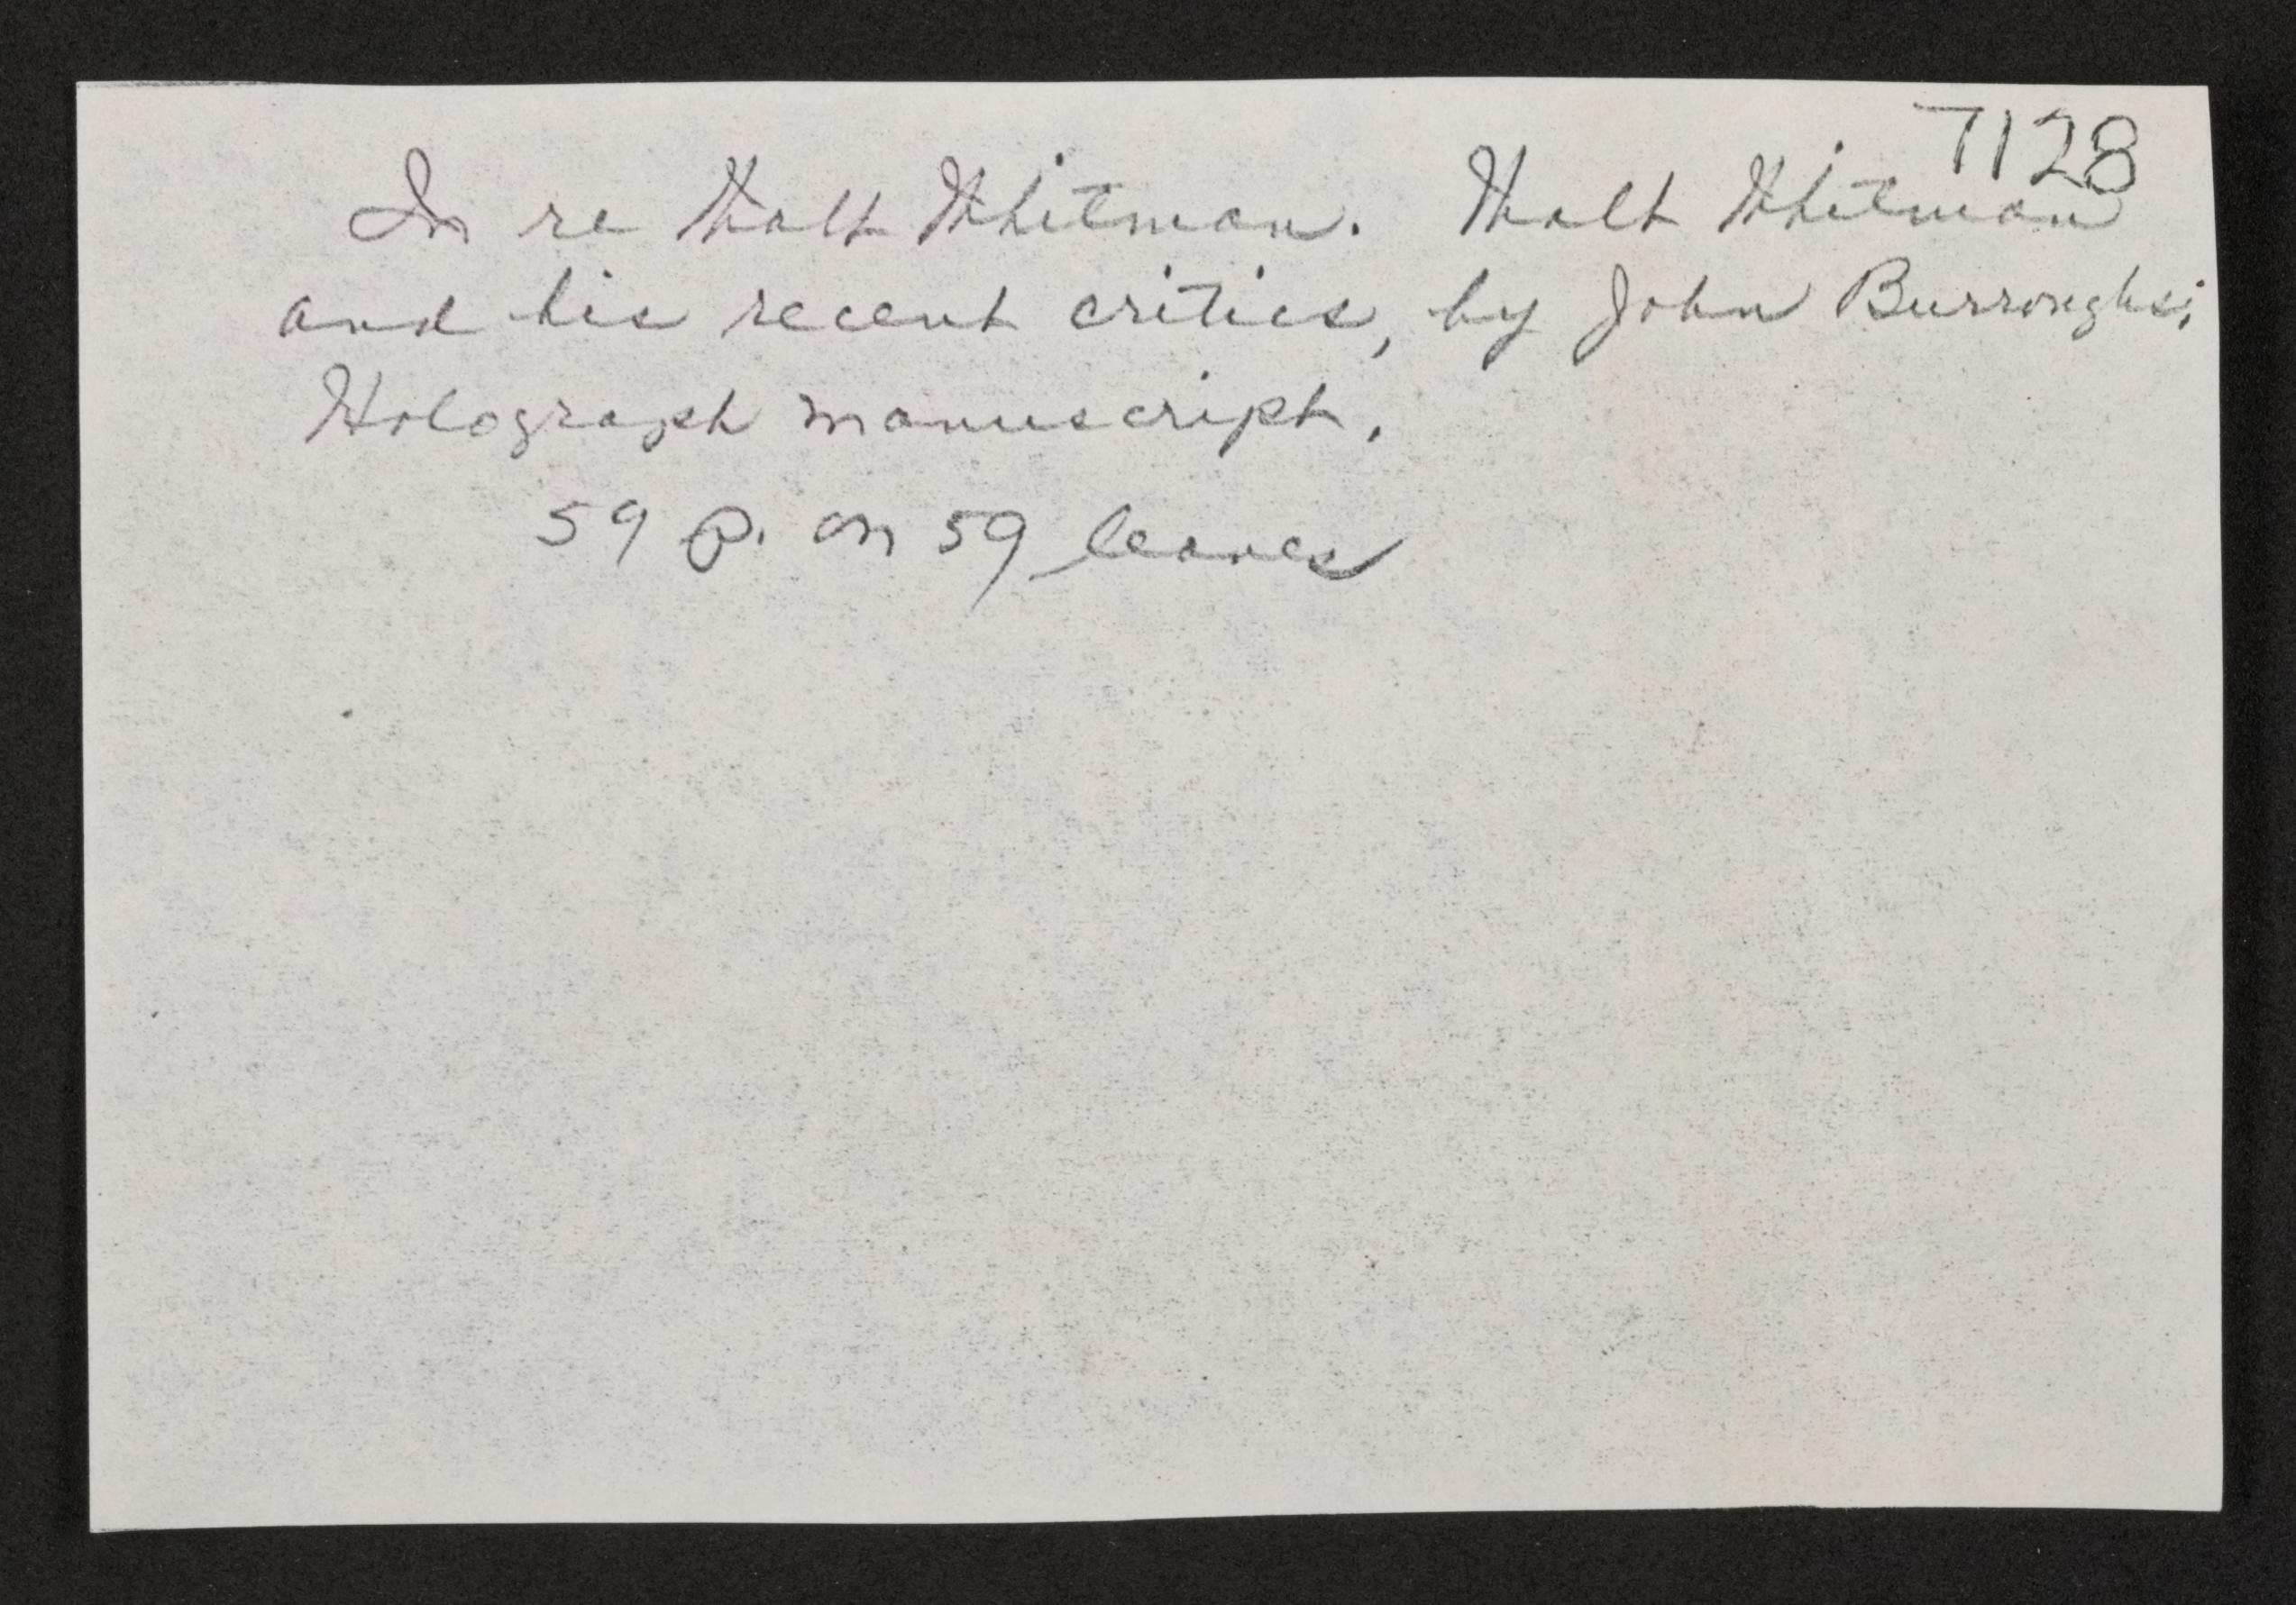 7128
In re Walt Whitman. Walt Whitman
and his recent critics, by John Burroughs;
Holograph manuscript.
59 p. on 59 leaves